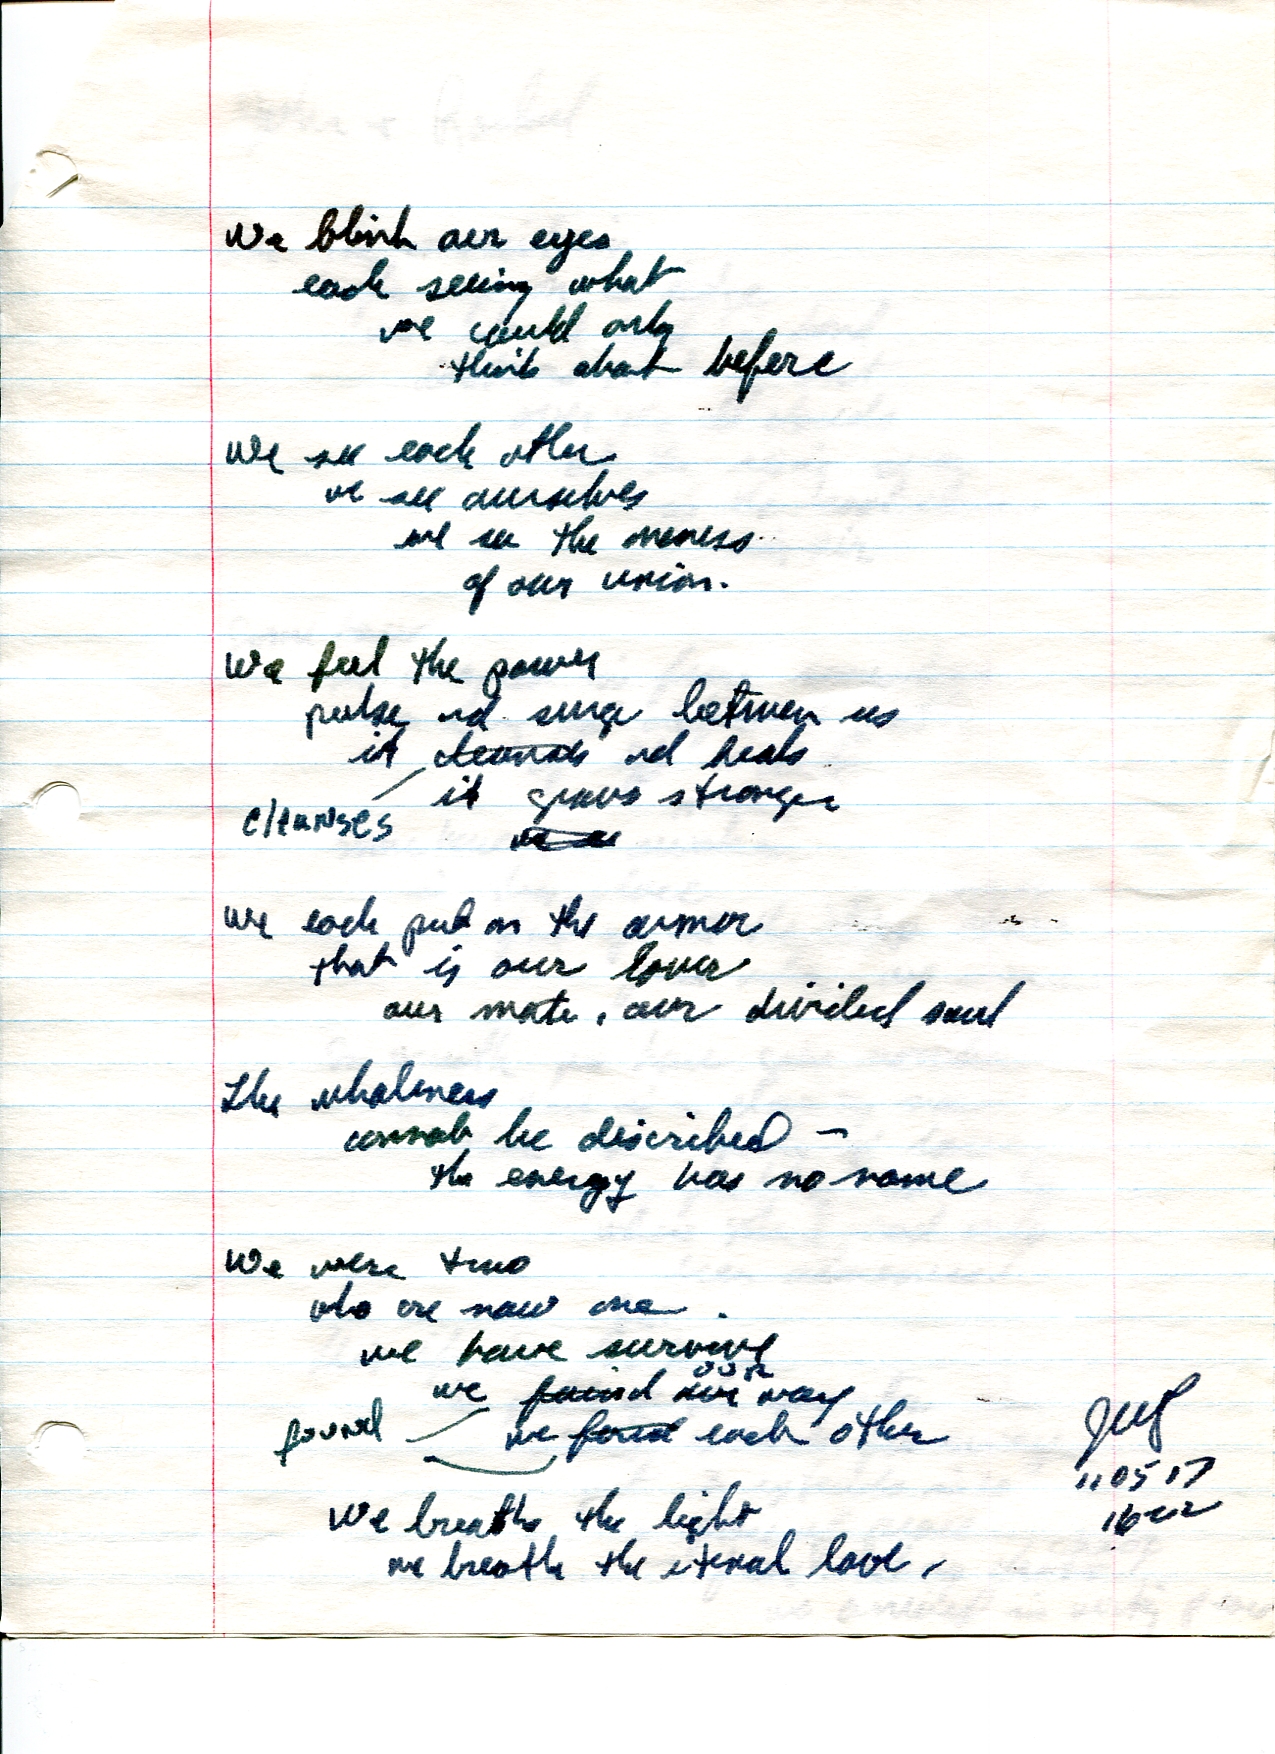 We blink our eyes
each seeing what
we could only
think about before
We see each other
we see ourselves
we see the oneness
of our union.
We feel the power
pulse and surge between us
it cleanses and heals
it grows stronger
cleanses
We each put on the armor
that is our lover
our mate, our divided soul
The wholeness
cannot be described —
the energy has no name
We were two
who are now one.
we have survived
we found our way
our
found
we found each other
11 05 17
We breathe the light
we breathe the eternal love.